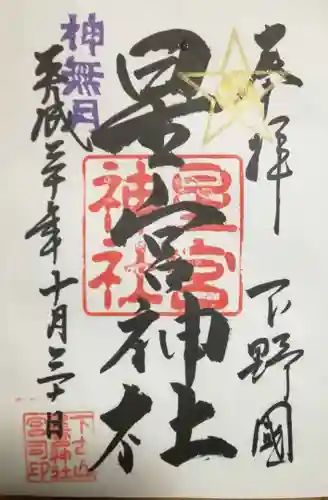 奉拝
下野國
星宮神社
星宮神社
神無月
平成三十年十月三十日
下さ山
星宮神社
宮司印